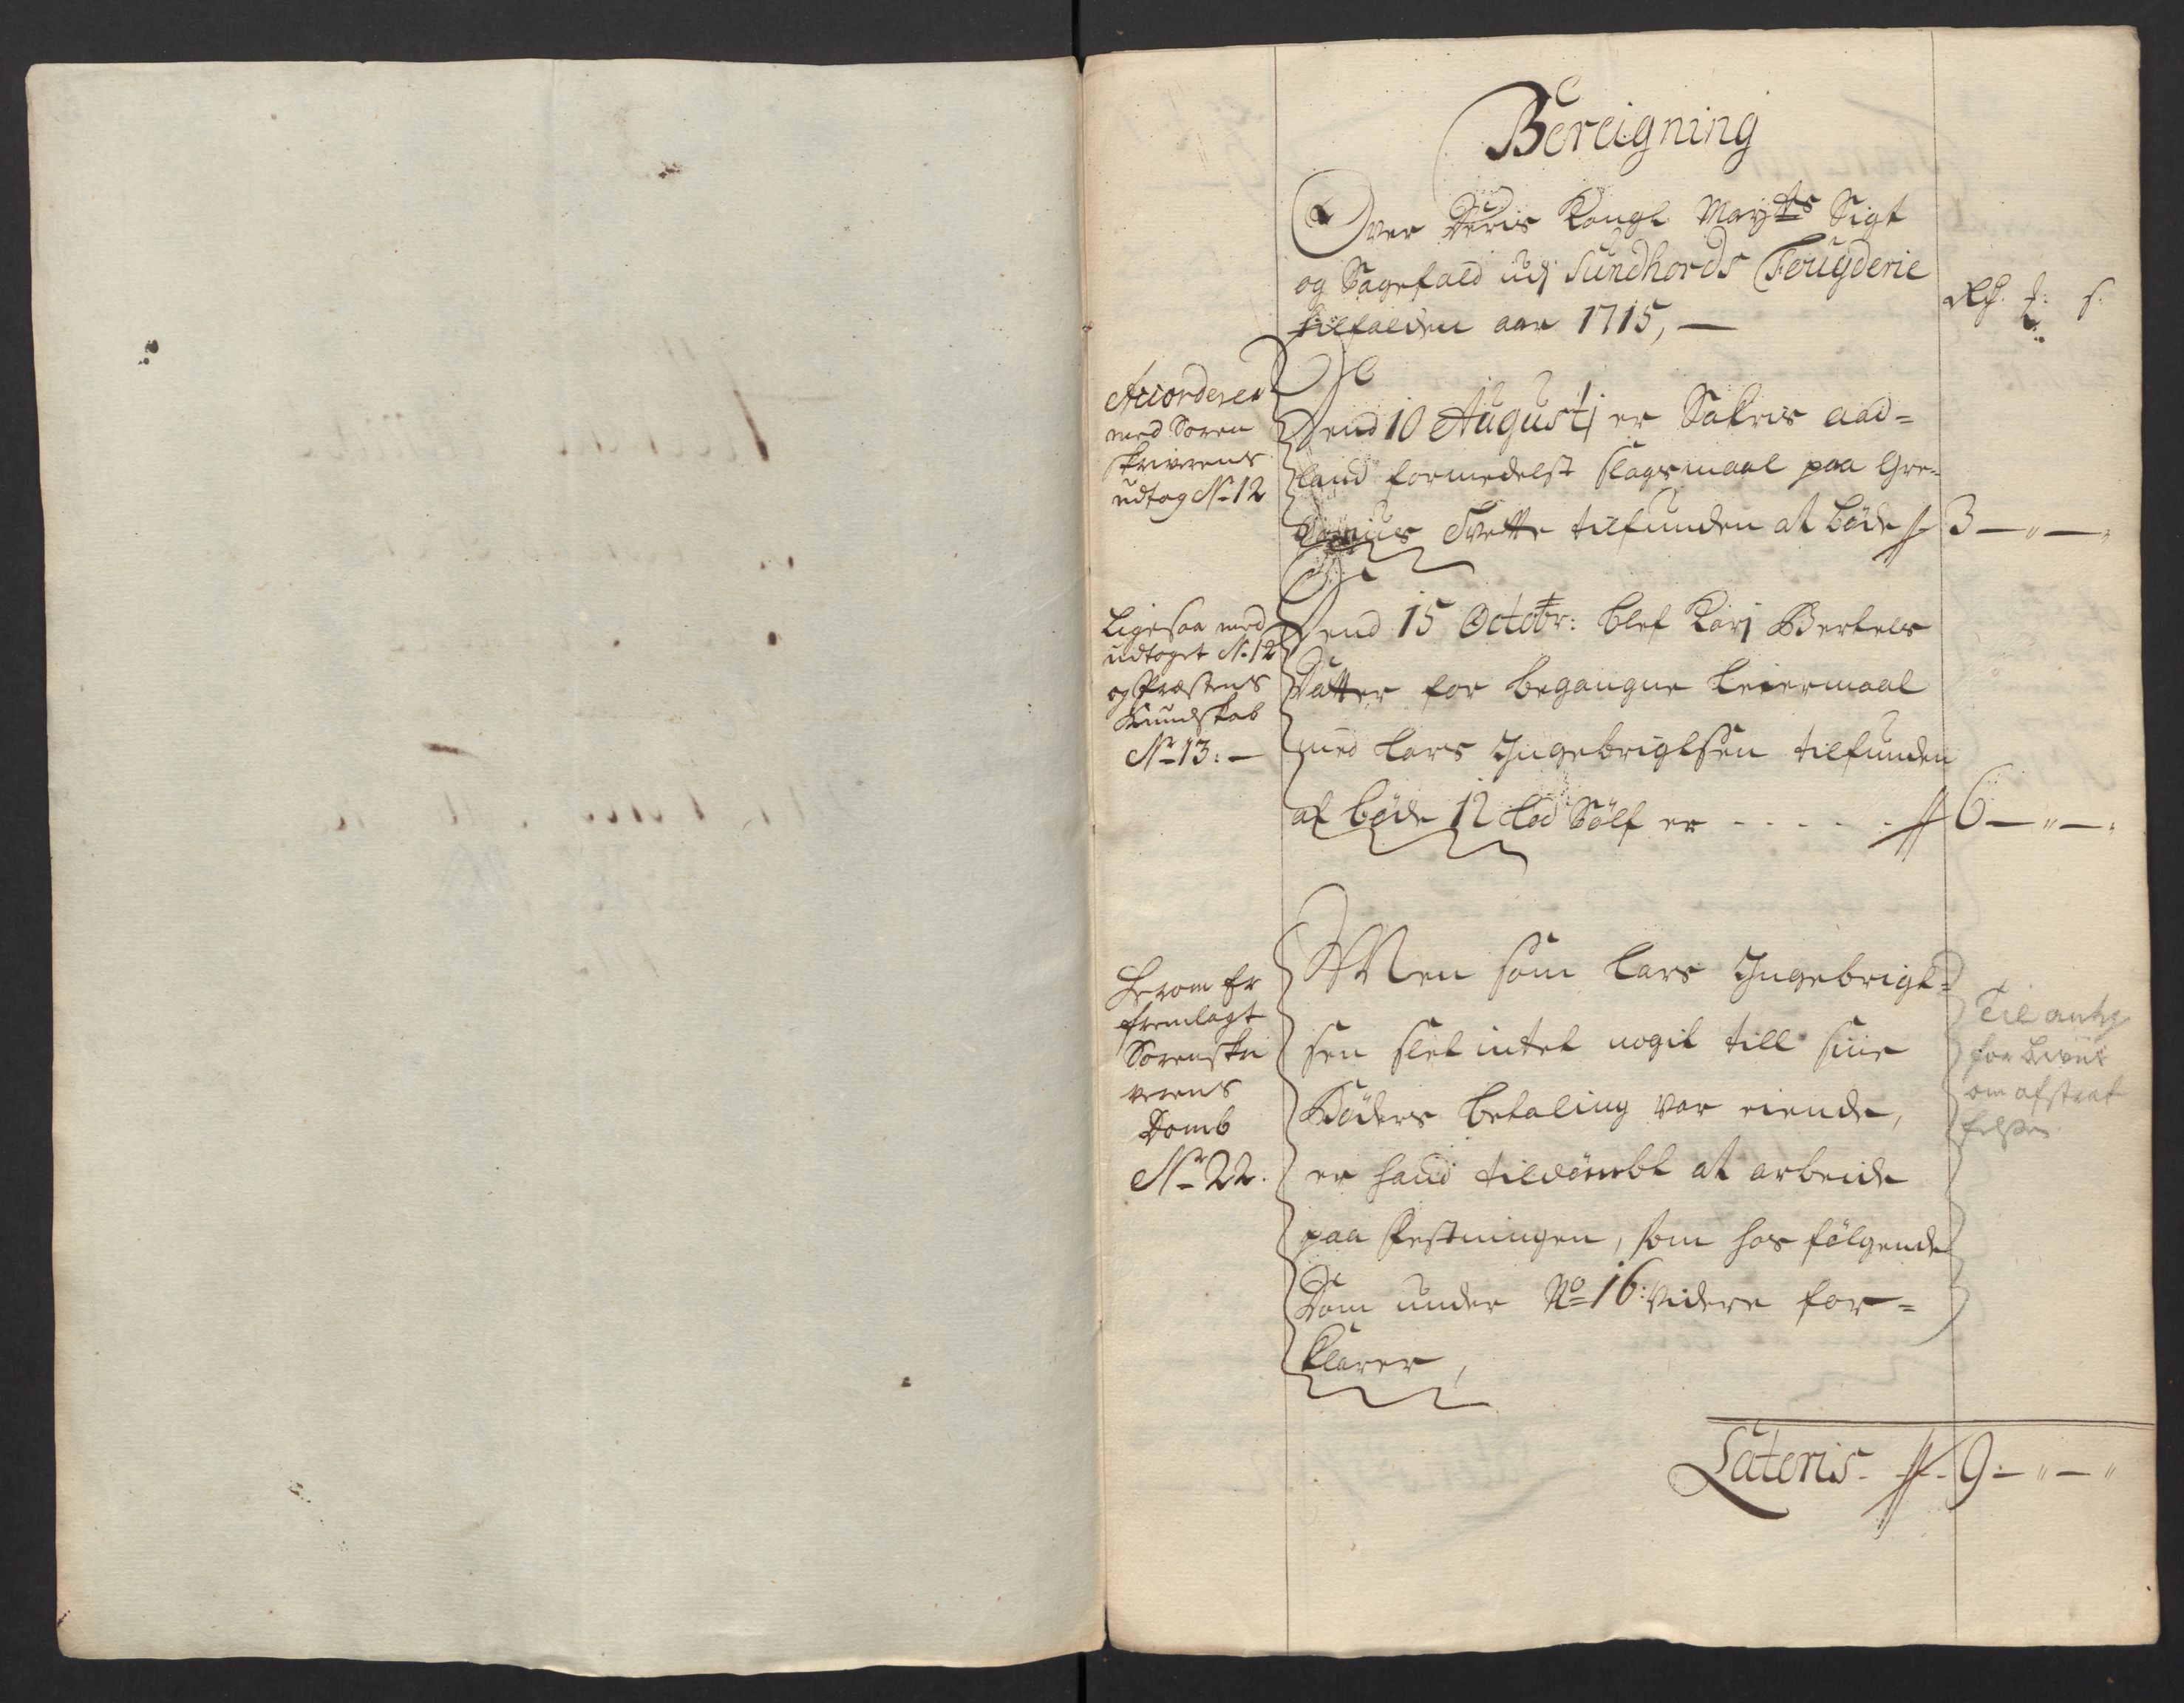 Bereigning
Over Deris Kongl Maytts Sigt
og Sagefald udj Sundhords Fougderie
tilfalden aar 1715, —
Accorderer
med Soren
skriverens
udtog No 12
Dend 10 Augustj er Sakris aad-
land formedelst slagsmaal paa Gre-
Tvette tilfunden at bøde 3 — " — "
Ligesaa med
udtoget No 12
og Præstens
Kundskab
No 13: —
Dend 15 Octobr: blef Karj Bertels
Datter for begangne Leiermaal
med Lars Ingebrigtsen tilfunden
at bøde 12 Lod Sølf er - - - - - 6 — " — "
Herom Er
fremlagt
Sorenskri
verens
Domb
No 22.
Men som Lars Ingebrigt-
sen slet intet nogit till sine
Bøders betaling var eiende,
er hand tildømbt at arbeide
paa Festningen, som hos følgende
Dom under No 16: videre for-
klarer,
Til antg
for beviis
om afstraf
felsen
Lateris - 9 - " — "